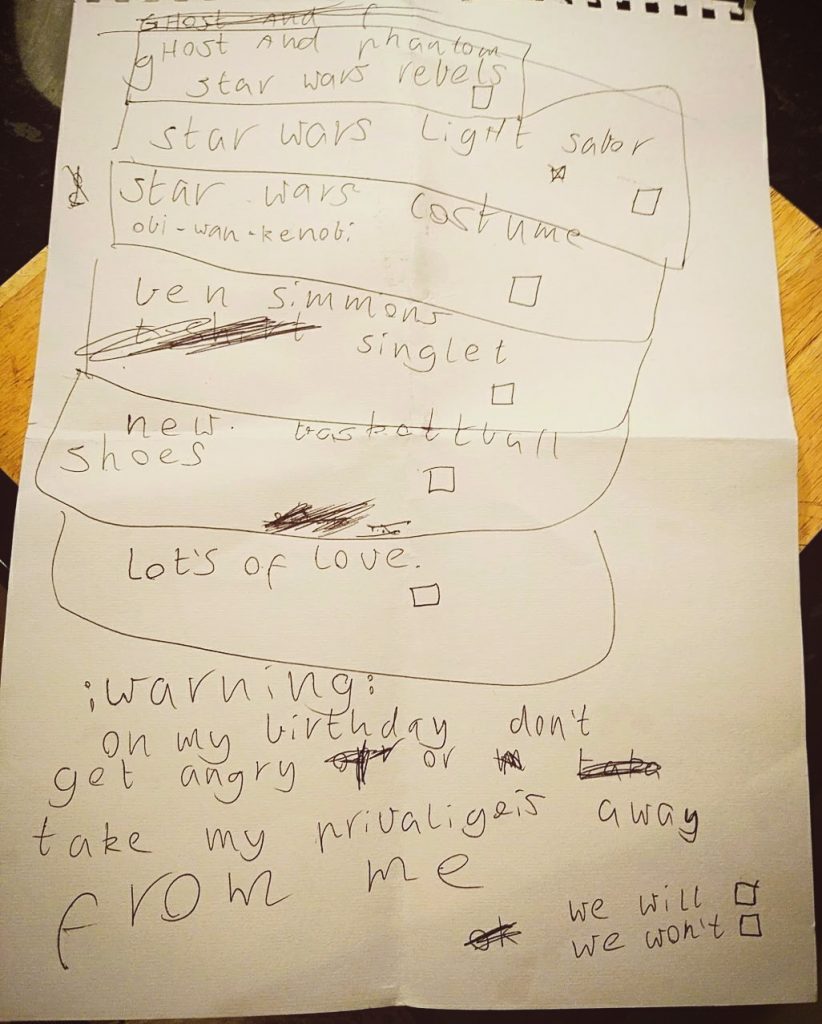 GHost And
gHost And phantom
star wars rebels
star wars LigHt sabor
star wars costume
obi-wan-kenobi
ben simmons
t-shirt singlet
new. basketball
shoes
Lot's of Love.
¡warning:
on my birthday don't
get angry or
take
take my privaligeis away
from me
we will
ok we won't